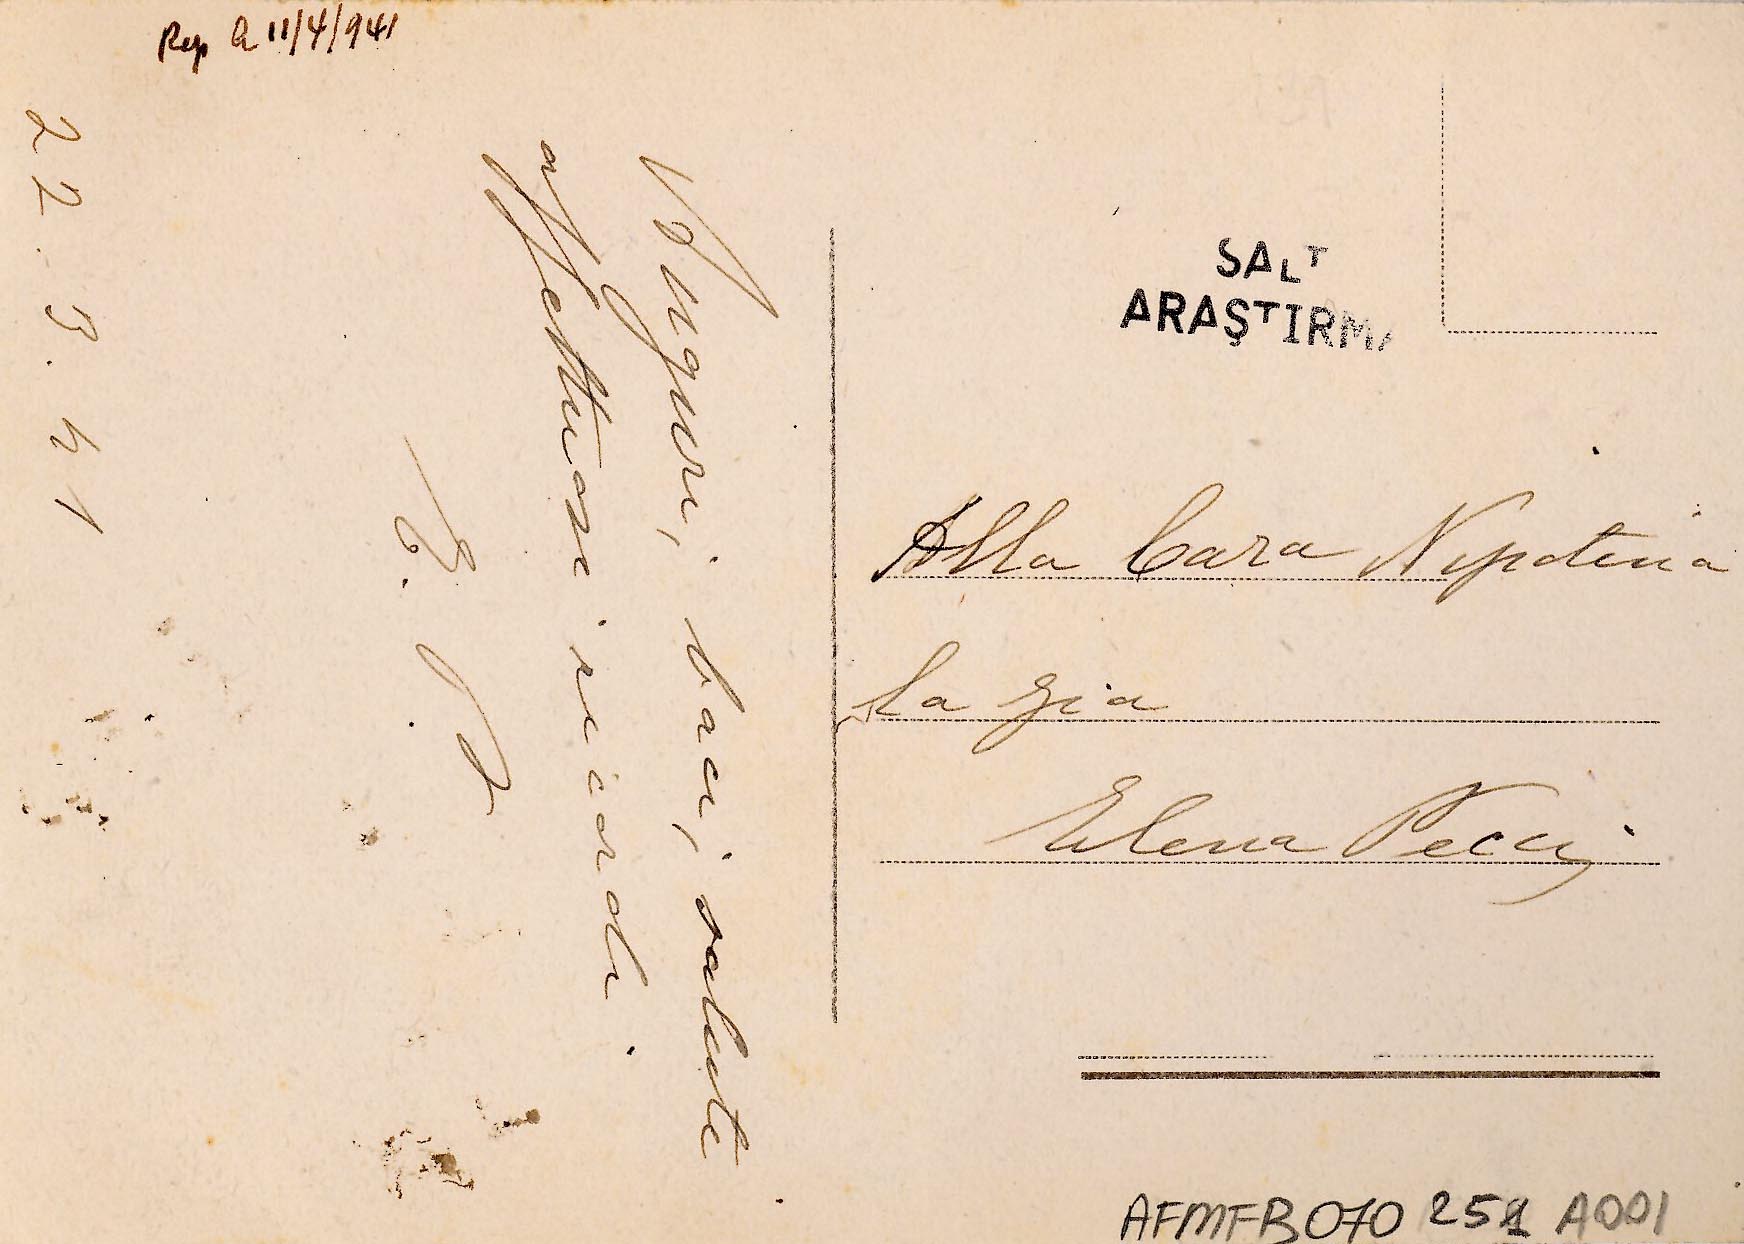 Rep a 11/4/941
22.3.41
Auguri, baci, salute
affettuosi ricordi
E. P.
SALT
ARAŞTIRMA
Alla Cara Nipotina
la zia
Elena Pecci
AFMFB070 251 A001